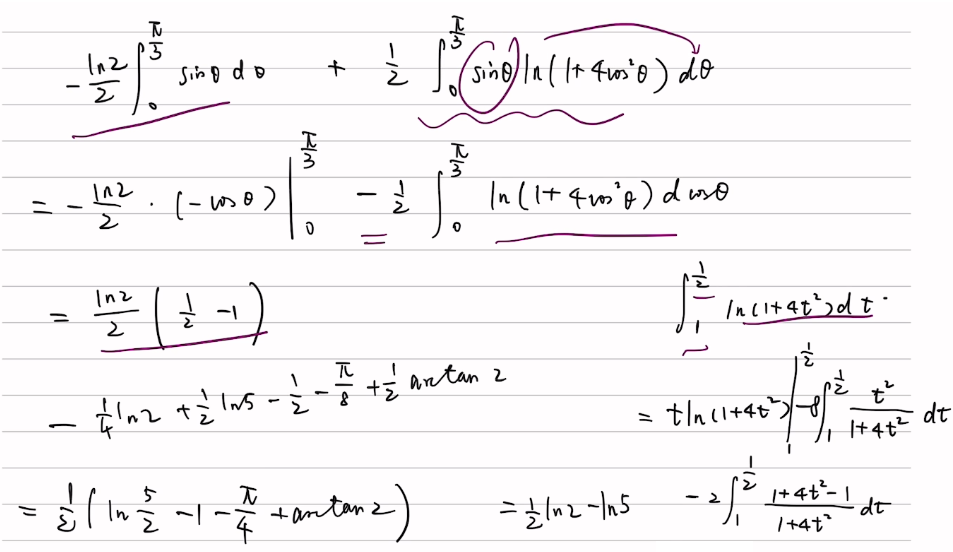 -\frac{\ln 2}{2} \int_0^{\frac{\pi}{3}} \sin\theta \, d\theta + \frac{1}{2} \int_0^{\frac{\pi}{3}} \sin\theta \ln(1+4\cos^2\theta) \, d\theta
= -\frac{\ln 2}{2} \cdot (-\cos\theta) \Big|_0^{\frac{\pi}{3}} - \frac{1}{2} \int_0^{\frac{\pi}{3}} \ln(1+4\cos^2\theta) \, d\cos\theta
= \frac{\ln 2}{2} \left( \frac{1}{2} - 1 \right)
- \frac{1}{4} \ln 2 + \frac{1}{2} \ln 5 - \frac{1}{2} - \frac{\pi}{8} + \frac{1}{2} \arctan 2
= \frac{1}{2} \left( \ln \frac{5}{2} - 1 - \frac{\pi}{4} + \arctan 2 \right)
\int_1^{\frac{1}{2}} \ln(1+4t^2) \, dt.
= t \ln(1+4t^2) \Big|_1^{\frac{1}{2}} - 8 \int_1^{\frac{1}{2}} \frac{t^2}{1+4t^2} \, dt
= \frac{1}{2} \ln 2 - \ln 5 - 2 \int_1^{\frac{1}{2}} \frac{1+4t^2-1}{1+4t^2} \, dt